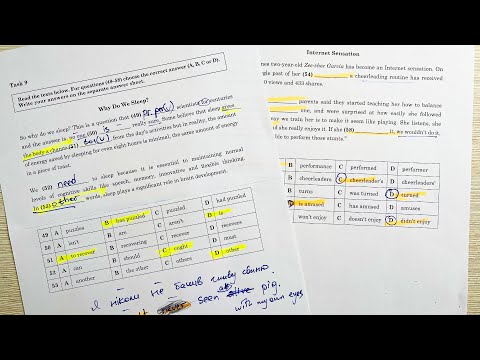 Task 9
Read the texts below. For questions (49–58) choose the correct answer (A, B, C or D).
Write your answers on the separate answer sheet.
Why Do We Sleep?
So why do we sleep? This is a question that (49) scientists for centuries
and the answer is, no one (50) is really sure. Some believe that sleep gives
the body a chance (51) from the day's activities but in reality, the amount
of energy saved by sleeping for even eight hours is minimal, the same amount of energy
in a piece of toast.
We (52) need to sleep because it is essential to maintaining normal
levels of cognitive skills like speech, memory, innovative and flexible thinking.
In (53) other words, sleep plays a significant role in brain development.
49 A puzzles B has puzzled C puzzled D had puzzled
50 A isn't B are C aren't D is
51 A to recover B recovering C recover D recovers
52 A can B should C ought D must
53 A another B the other C others D other
Я ніколи не бачив живу свиню.
seen alive pig.
with my own eyes
Internet Sensation
nes two-year-old Zee-zhar Garcia has become an Internet sensation. On
gle post of her (54) cheerleading routine has received
0 views and 433 shares.
parents said they started teaching her how to balance
one, and were surprised at how easily she followed
ay we train her is to make it seem like playing. She listens, she
of she really enjoys it. If she (58) it, we wouldn't do it.
ble to perform those stunts."
B performance C performed D performer
B cheerleaders C cheerleader's D cheerleaders'
B turns C was turned D turned
B is amused C has amused D amuses
won't enjoy C doesn't enjoy D didn't enjoy